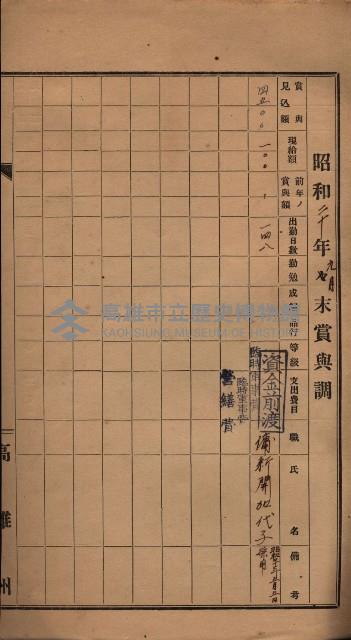 昭和二十年九月末賞與調
賞與見込額
現給額
前年ノ賞與額
出勤日數
勤勉
成績
品行
等級
支出費目
職氏名
備考
四五〇〇
一〇〇
一四八
資金前渡
臨時軍事費
臨時軍事費
營繕費
傭 新開加代子
高雄市立歷史博物館
KAOHSIUNG MUSEUM OF HISTORY
高雄州